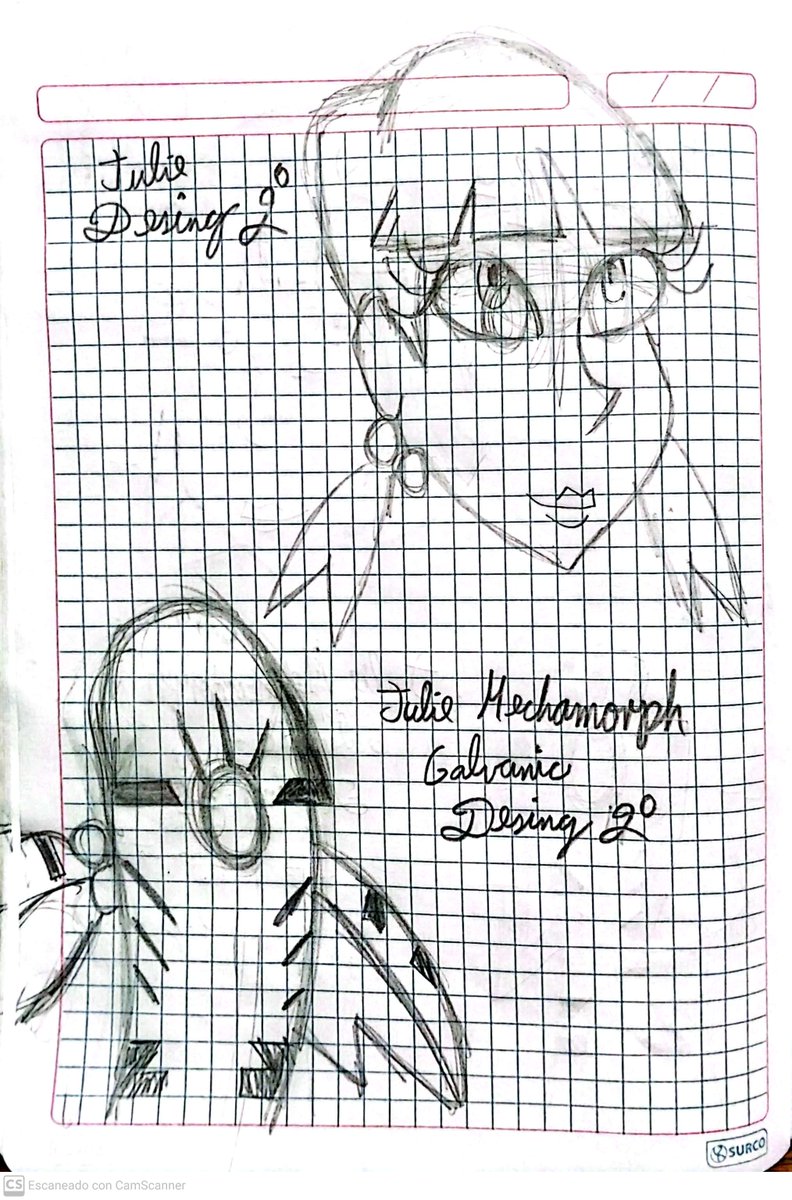 Julie
Desing 2º
Julie Mechamorph
Galvanic
Desing 2º
SURCO
CS Escaneado con CamScanner